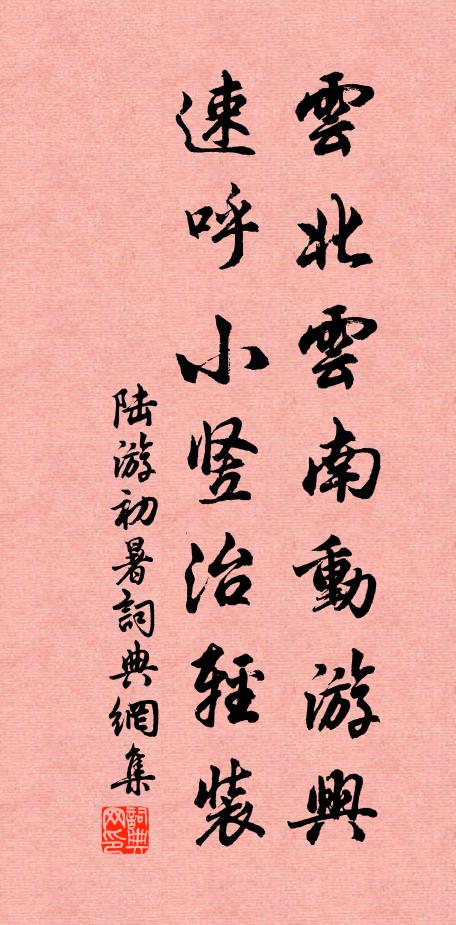 雲北雲南動游興
速呼小竖治輕裝
陸游初暑詞典網集
詞典網印